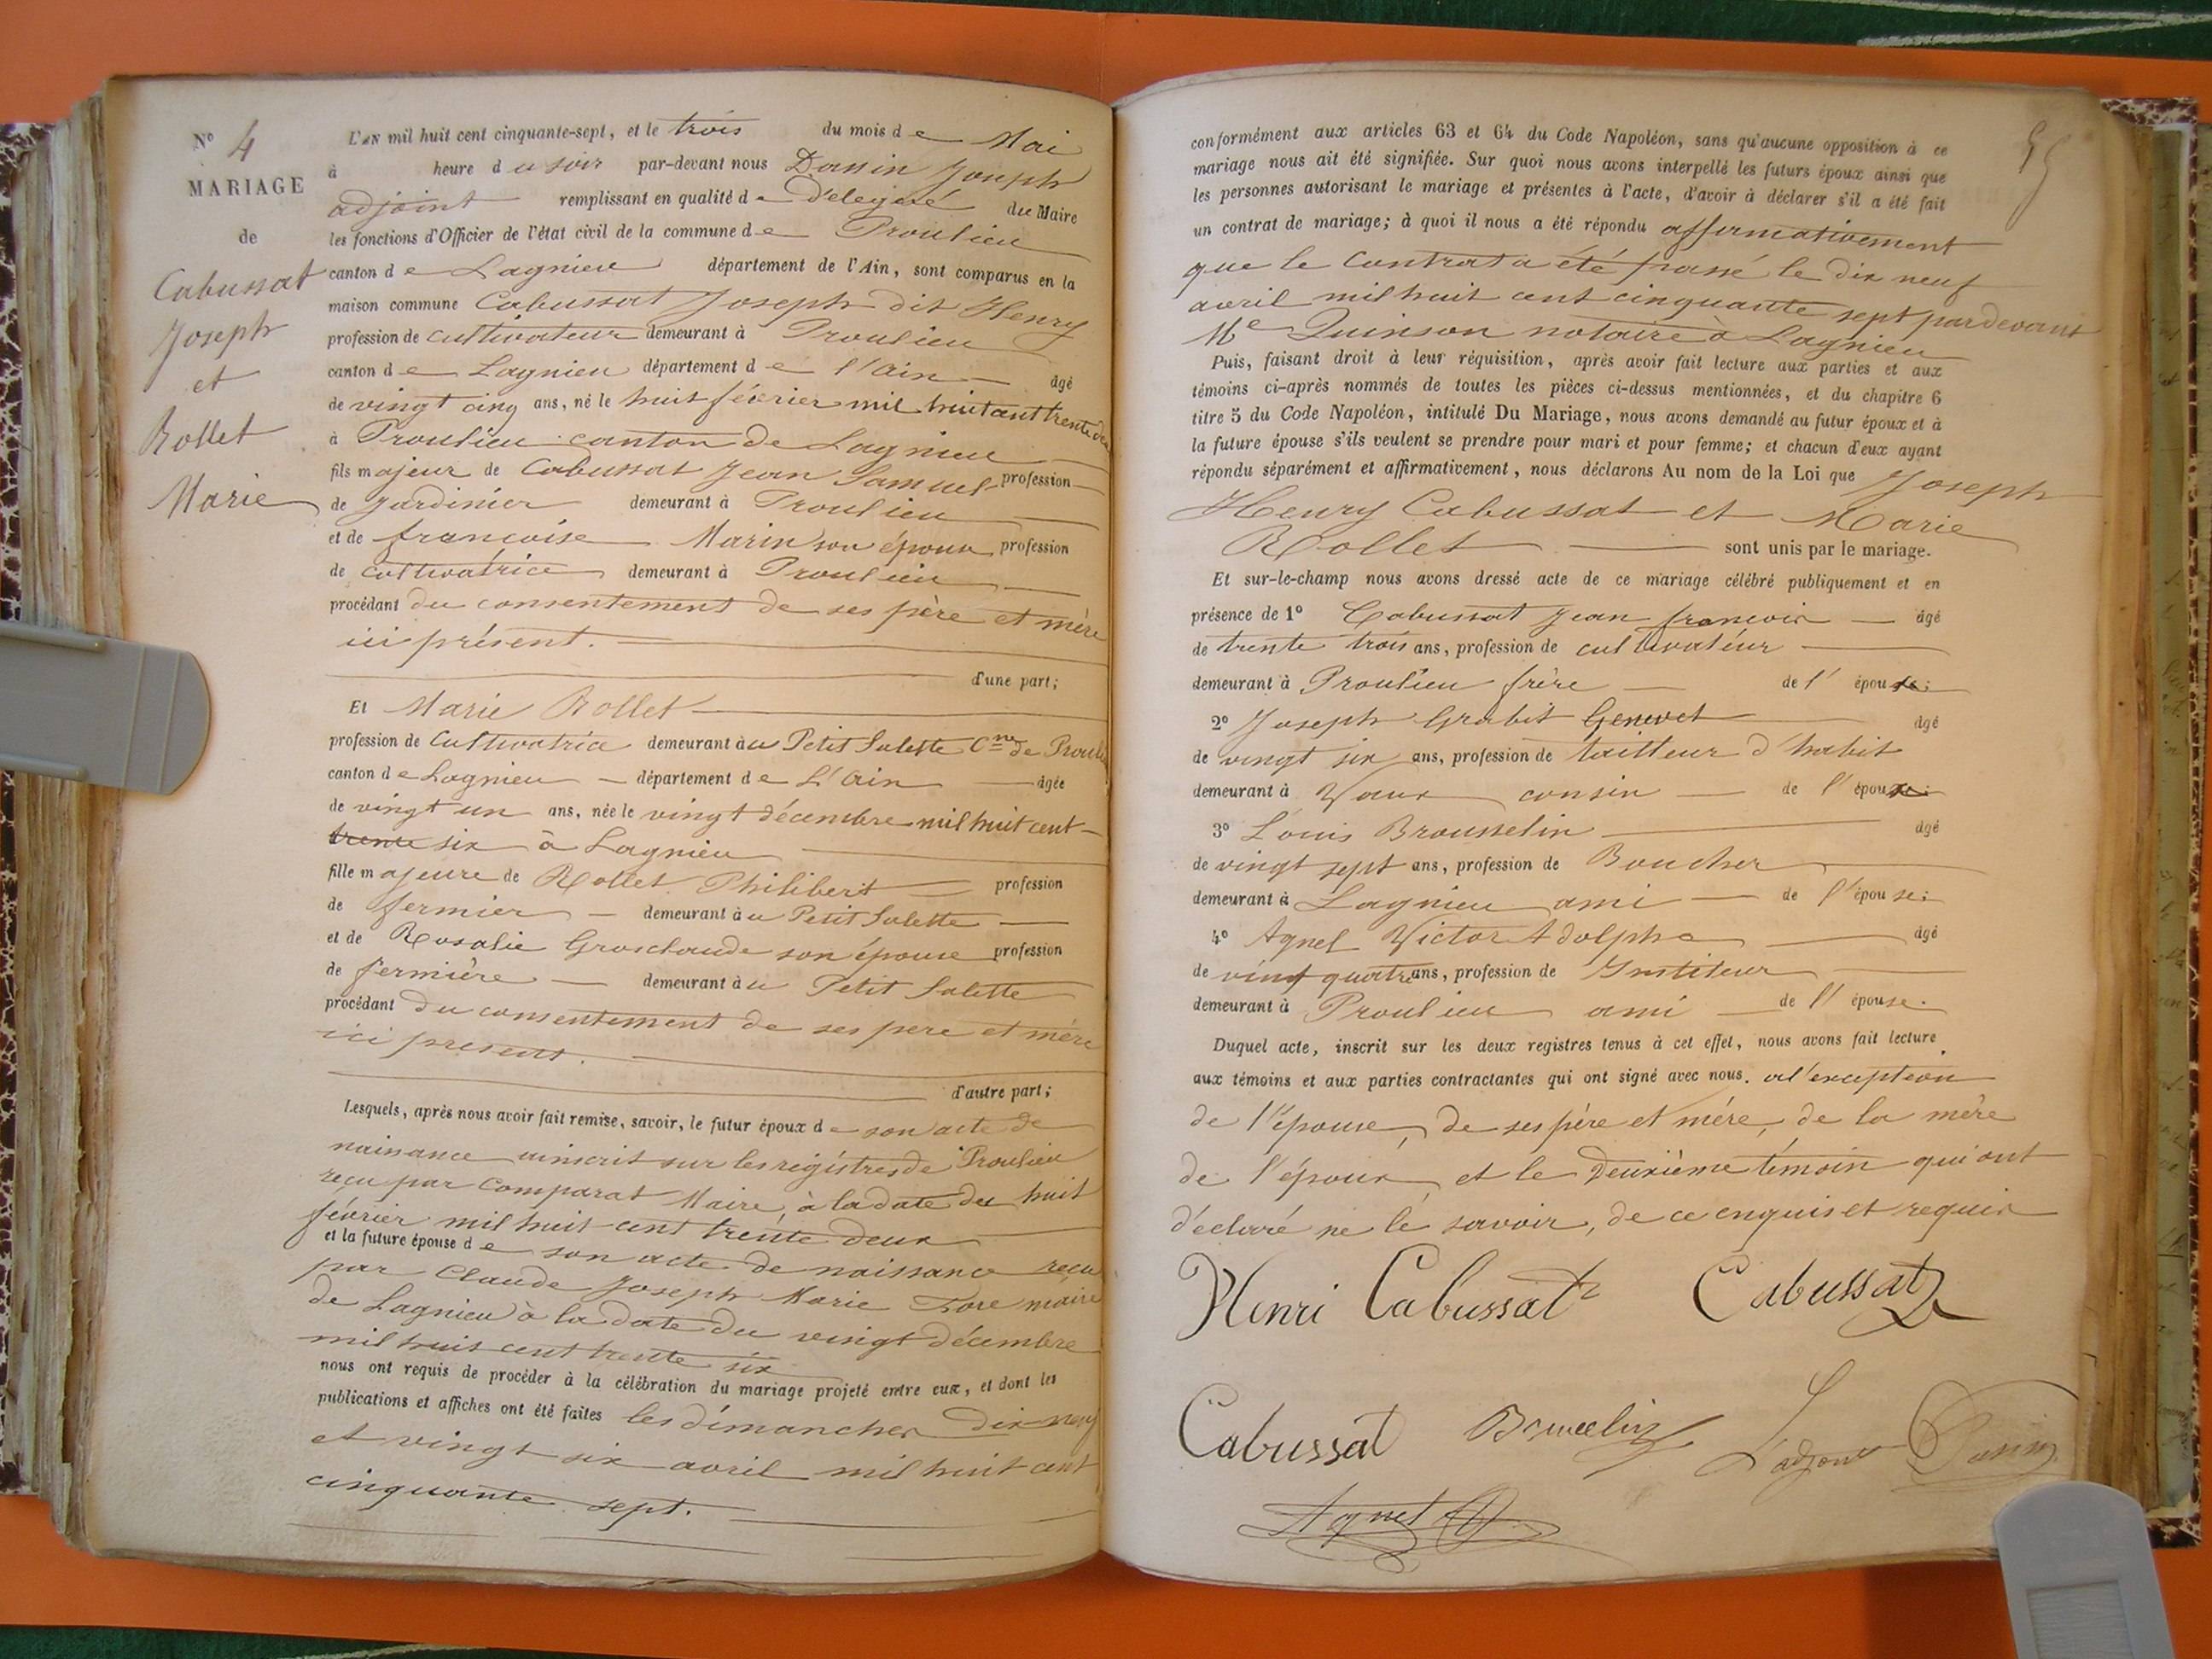 N° 4
MARIAGE
de
Cabussat
Joseph
et
Rollet
Marie
L'AN mil huit cent cinquante-sept, et le trois du mois de Mai
à heure du soir par-devant nous Dassin Joseph
adjoint remplissant en qualité de délégué du Maire
les fonctions d'Officier de l'état civil de la commune de Proulieu
canton de Lagnieu département de l'Ain, sont comparus en la
maison commune Cabussat Joseph dit Henry
profession de cultivateur demeurant à Proulieu
canton de Lagnieu département de l'ain âgé
de vingt cinq ans, né le huit février mil huit cent trente deux
à Proulieu canton de Lagnieu
fils majeur de Cabussat Jean Samuel profession
de Jardinier demeurant à Proulieu
et de françoise Marin son épouse profession
de cultivatrice demeurant à Proulieu
procédant du consentement de ses père et mère
ici présent.
d'une part;
Et Marie Rollet
profession de Cultivatrice demeurant au Petit Salette Cne de Proulieu
canton de Lagnieu département de L'ain âgée
de vingt un ans, née le vingt décembre mil huit cent
trente six à Lagnieu
fille majeure de Rollet Philibert profession
de fermier demeurant au Petit Salette
et de Rosalie Grosclaude son épouse profession
de fermière demeurant au Petit Salette
procédant du consentement de ses pere et mère
ici présent.
d'autre part;
Lesquels, après nous avoir fait remise, savoir, le futur époux de son acte de
naissance inscrit sur les régistres de Proulieu
reçu par Comparat Maire, à la date du huit
février mil huit cent trente deux
et la future épouse de son acte de naissance reçu
par Claude Joseph Marie maire
de Lagnieu à la date du vingt décembre
mil huit cent trente six
nous ont requis de procéder à la célébration du mariage projeté entre eux, et dont les
publications et affiches ont été faites les dimanches dix neuf
et vingt six avril mil huit cent
cinquante sept.
55
conformément aux articles 63 et 64 du Code Napoléon, sans qu'aucune opposition à ce
mariage nous ait été signifiée. Sur quoi nous avons interpellé les futurs époux ainsi que
les personnes autorisant le mariage et présentes à l'acte, d'avoir à déclarer s'il a été fait
un contrat de mariage; à quoi il nous a été répondu affirmativement
que le Contrat a été passé le dix neuf
avril mil huit cent cinquante sept pardevant
Me Quinson notaire à Lagnieu
Puis, faisant droit à leur réquisition, après avoir fait lecture aux parties et aux
témoins ci-après nommés de toutes les pièces ci-dessus mentionnées, et du chapitre 6
titre 5 du Code Napoléon, intitulé Du Mariage, nous avons demandé au futur époux et à
la future épouse s'ils veulent se prendre pour mari et pour femme; et chacun d'eux ayant
répondu séparément et affirmativement, nous déclarons Au nom de la Loi que Joseph
Henry Cabussat et Marie
Rollet sont unis par le mariage.
Et sur-le-champ nous avons dressé acte de ce mariage célébré publiquement et en
présence de 1° Cabussat Jean françois âgé
de trente trois ans, profession de cultivateur
demeurant à Proulieu frère de l'époux;
2° Joseph Grabit Genevet âgé
de vingt six ans, profession de tailleur d'habit
demeurant à Vaux cousin de l'époux;
3° Louis Brousselin âgé
de vingt sept ans, profession de Boucher
demeurant à Lagnieu ami de l'épouse;
4° Agnel Victor Adolphe âgé
de vint quatre ans, profession de Instituteur
demeurant à Proulieu ami de l'épouse.
Duquel acte, inscrit sur les deux registres tenus à cet effet, nous avons fait lecture
aux témoins et aux parties contractantes qui ont signé avec nous. a l'exception
de l'épouse, de ses père et mére, de la mère
de l'époux et le deuxième témoin qui ont
déclaré ne le savoir, de ce enquis et requis
Henri Cabussat Cabussat
Cabussat L'adjoint Dassin
Agnel